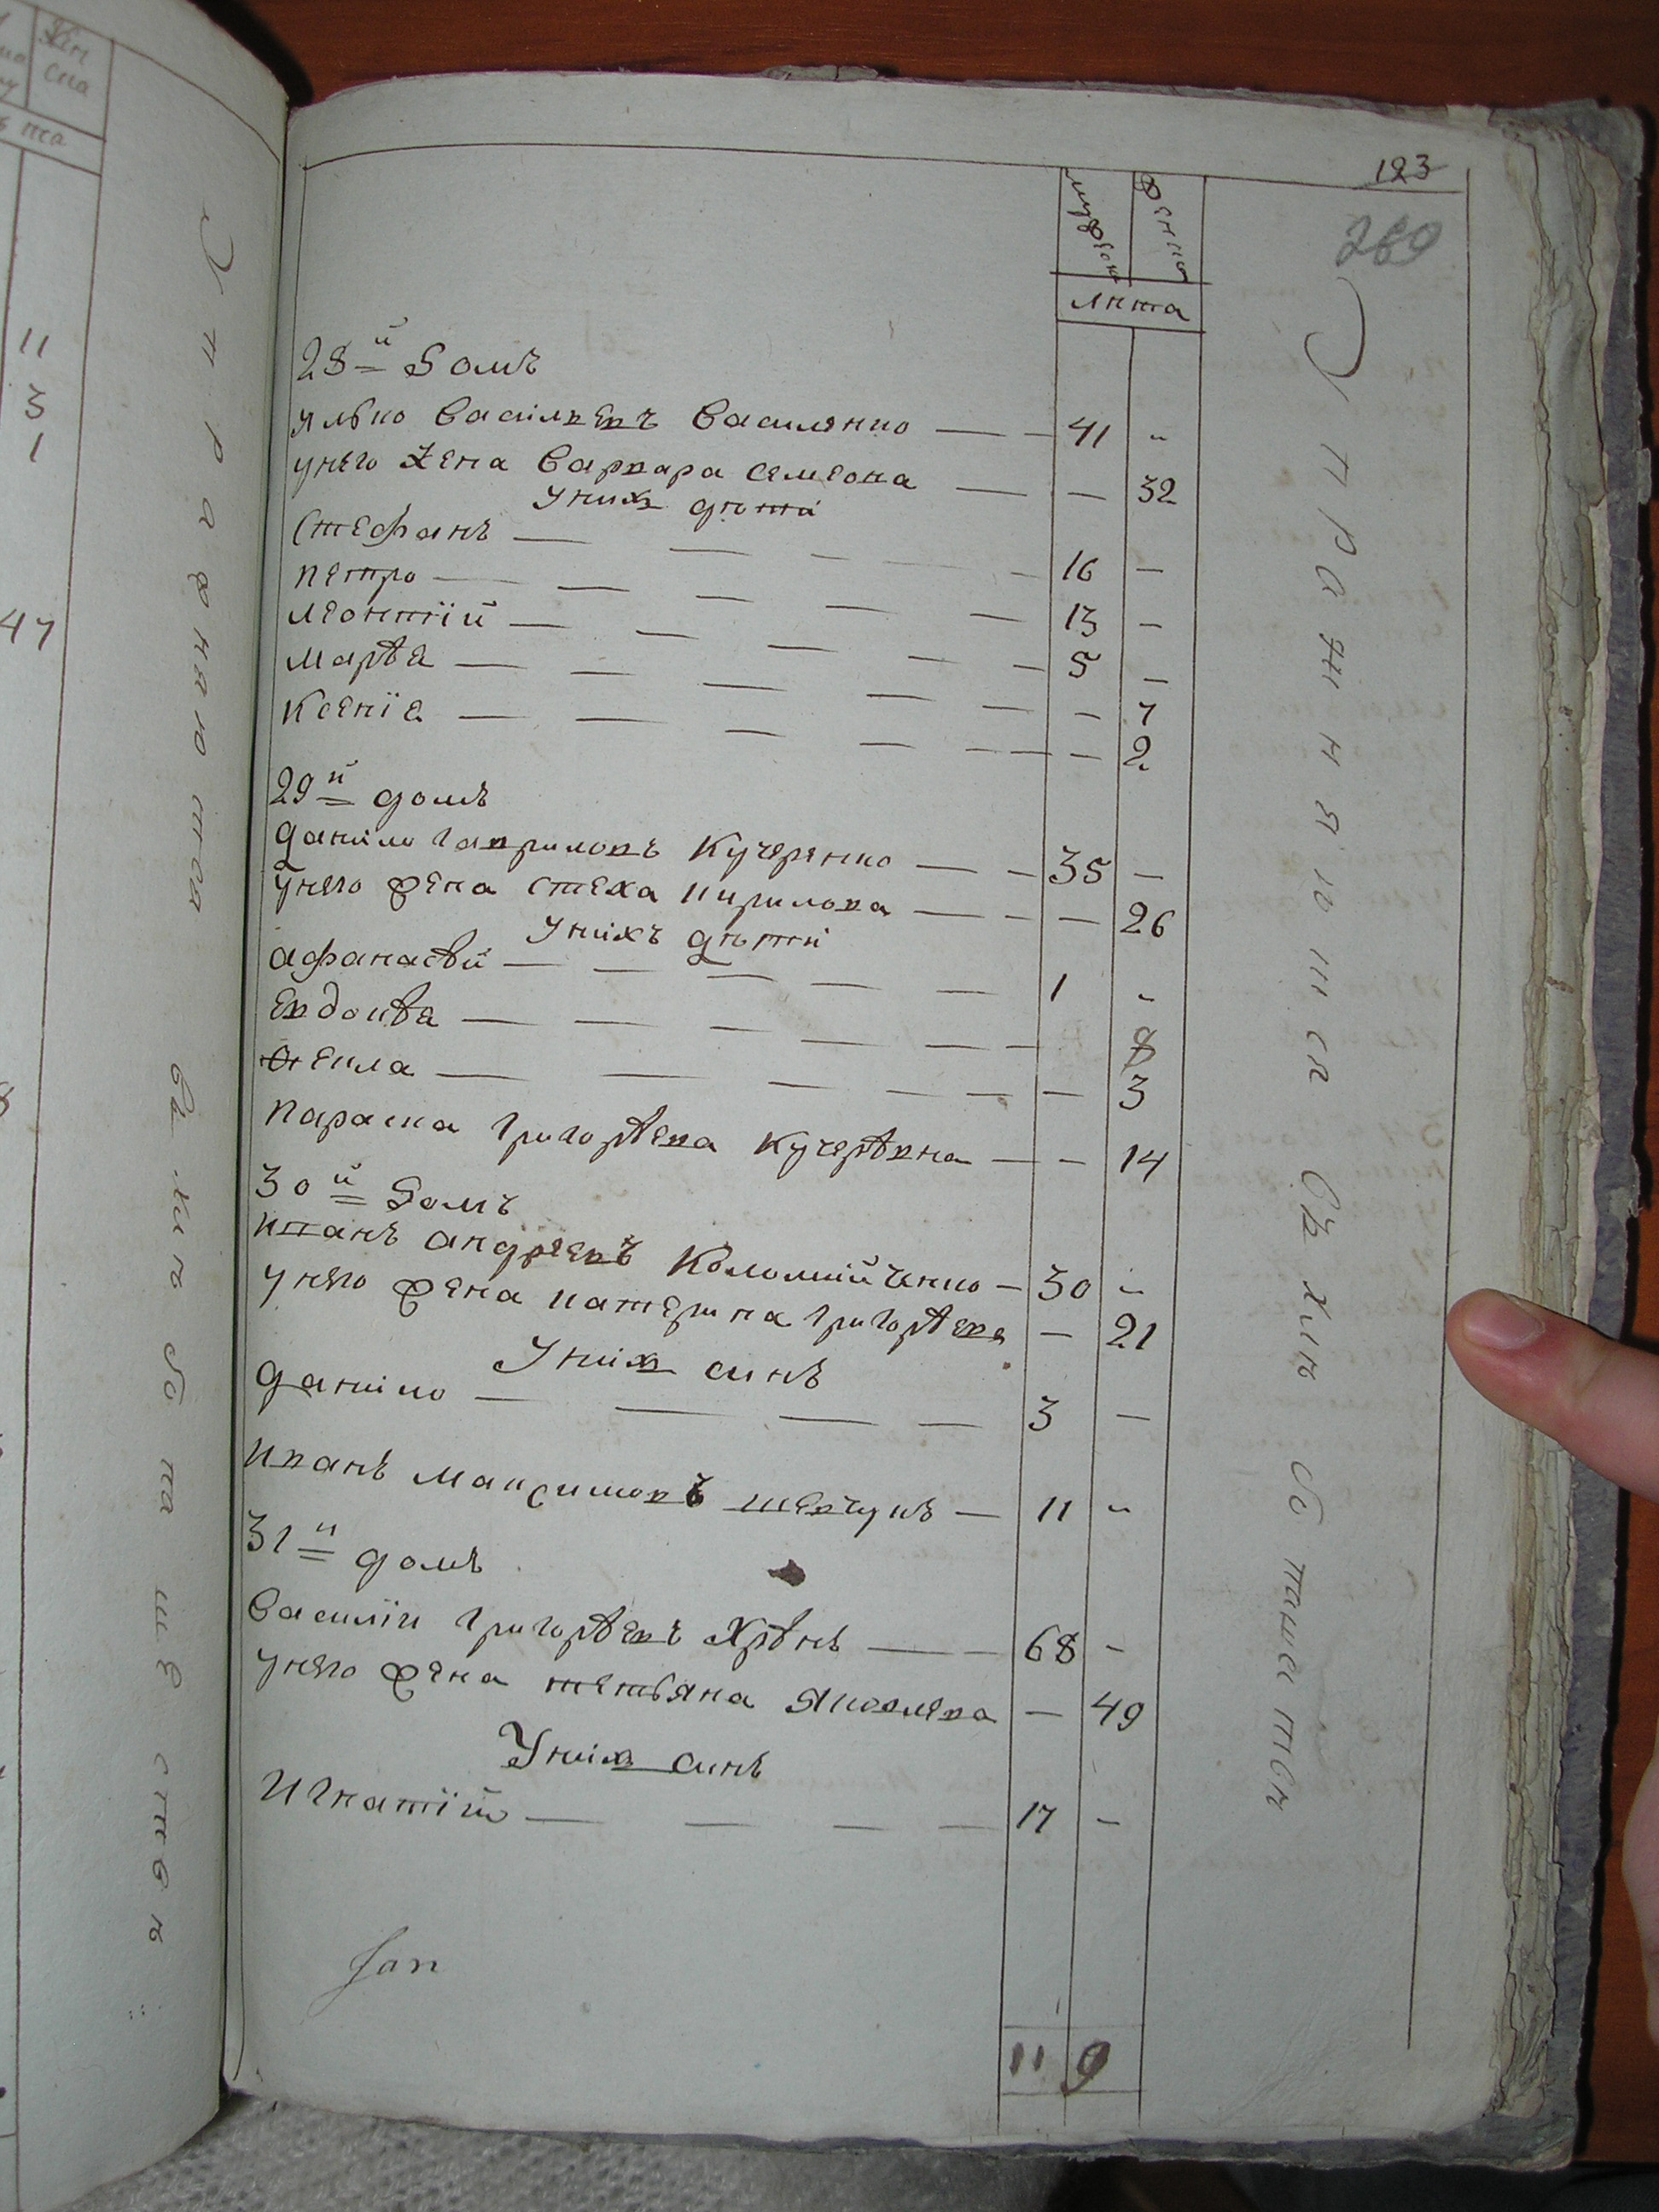 123
269
мужеска женска
лѣта
28й домъ
Яцко Васілевъ Василенко — — 41 -
унего жена Варвара Семеова — — 32
Унихъ дѣти
Стефанъ — — — — 16 —
Петро — — — — — 13 —
Леонтій — — — — — 5 —
Марѣя — — — — — — 7
Ксенія — — — — — — 2
29й домъ
Данило Гавриловъ Кучеренко — — 35 —
унего жена Стеха Кирилова — — — 26
Уніхъ дѣти
Афанасѣй — — — — — 1 -
Евдокѣя — — — — — 8
Ѳекла — — — — — — 3
Параска Григорѣева Кучерѣвна — — 14
30й домъ
Иванъ Андреевъ Коломийченко — 30 -
унего жена Катерина Григорѣева — 21
Уніхъ синъ
Даніло — — — — 3 —
Иванъ Мансимовъ Шевчукъ — 11 -
31й домъ
Василій Григорѣевъ Хрѣнъ — — 68 -
унего жена Тетьяна Яковлева — 49
Уніхъ синъ
Игнатій — — — — 17 —
11 9
Упражняются въ хлѣбопашествѣ
Упражняются въ хлѣбопашествѣ
11
3
1
47